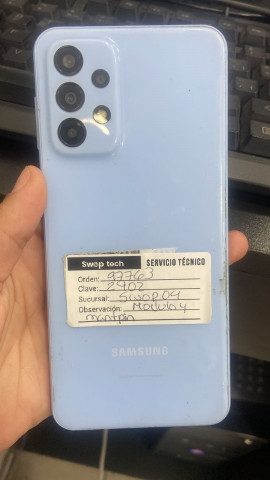 Swap tech SERVICIO TÉCNICO
Orden: 97763
Clave: 2402
Sucursal: SWAP 04
Observación: Modulo y
mant pin
SAMSUNG